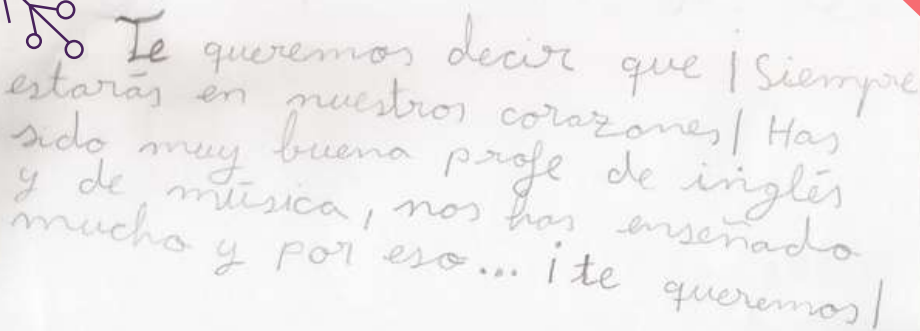 Te queremos decir que ¡Siempre
estarás en nuestros corazones! Has
sido muy buena profe de inglés
y de música, nos has enseñado
mucho y por eso... ¡te queremos!